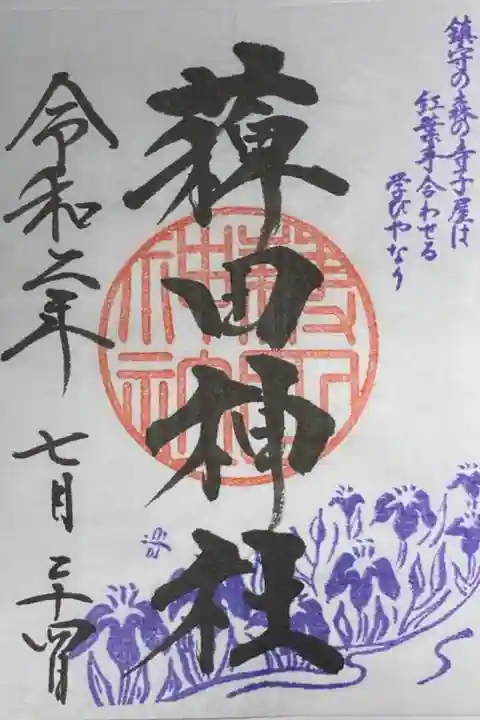 鎮守の森の寺子屋は
紅葉手合わせる
学びやなり
薭田神社
令和二年 七月二十四日